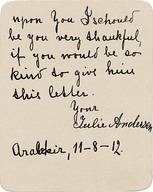 upon you I should
be you very thankful
if you would be so
kind to give him
this letter.
Your
Julie Andersen
11-8-12.